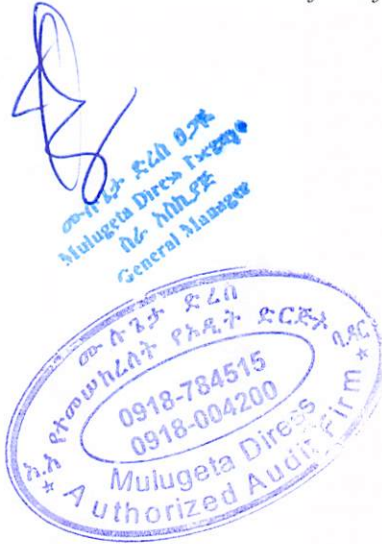 ሙሉጌታ ድረስ ፀጋዬ
Mulugeta Diress Tsegaye
ስራ አስኪያጅ
General Manager
ሙሉጌታ ድረስ
የተመሠከረለት የኦዲት ድርጅት
ባ.ዳር
0918-784515
0918-004200
Mulugeta Diress
Authorized Audit Firm